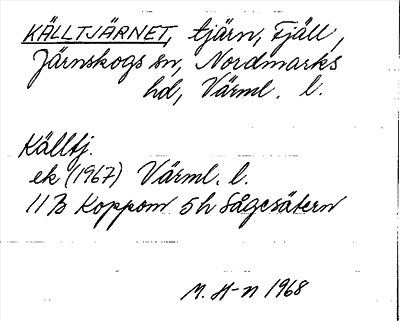 KÄLLTJÄRNET, tjärn, Fjäll,
Järnskogs sn, Nordmarks
hd, Värml. l.
Källtj.
ek (1967) Värml. l.
11 B Koppom 5h Sågesätern
M. H-n 1968